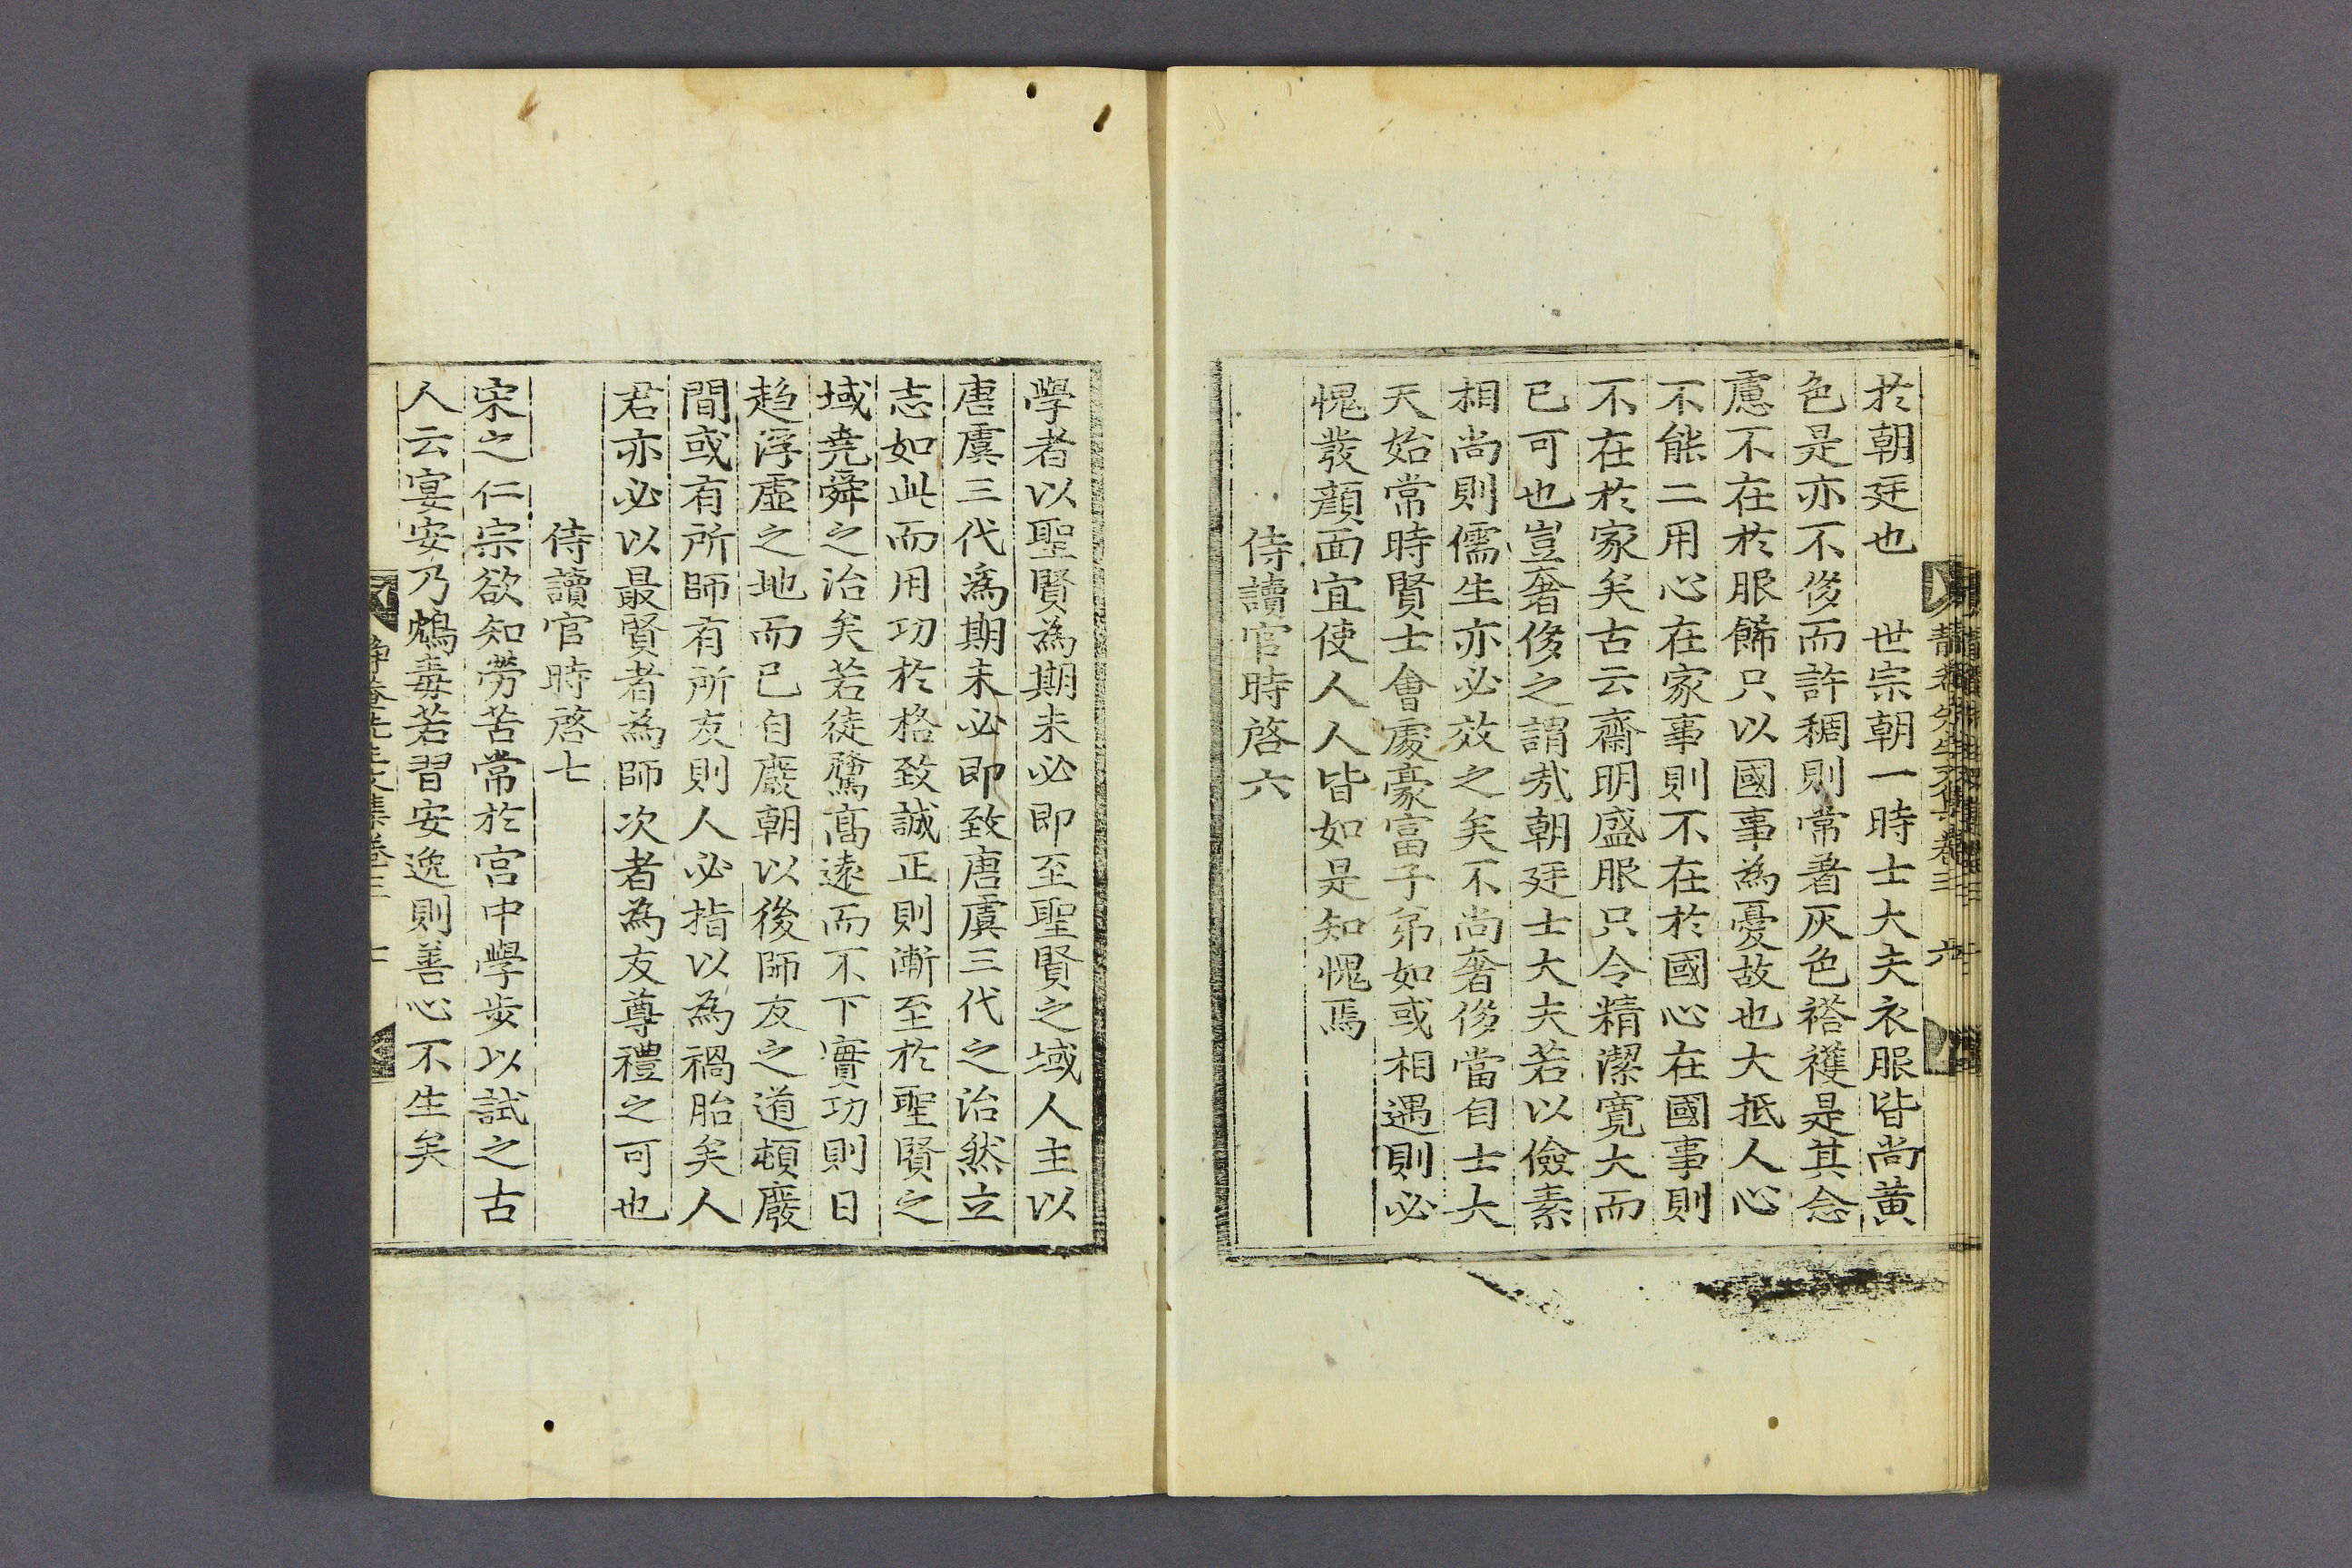 靜菴先生文集卷三 六
於朝廷也 世宗朝一時士大夫衣服皆尚黃
色是亦不侈而許稠則常着灰色褡𧞤是其念
慮不在於服飾只以國事為憂故也大抵人心
不能二用心在家事則不在於國心在國事則
不在於家矣古云齋明盛服只令精潔寬大而
已可也豈奢侈之謂㢤朝廷士大夫若以儉素
相尚則儒生亦必效之矣不尚奢侈當自士大
夫始常時賢士會處豪富子弟如或相遇則必
愧發顔面宜使人人皆如是知愧焉
侍讀官時啓六
學者以聖賢為期未必即至聖賢之域人主以
唐虞三代爲期未必即致唐虞三代之治然立
志如此而用功於格致誠正則漸至於聖賢之
域堯舜之治矣若徒騖高遠而不下實功則日
趍浮虛之地而已自廢朝以後師友之道頓廢
間或有所師有所友則人必指以為禍胎矣人
君亦必以最賢者為師次者為友尊禮之可也
侍讀官時啓七
宋之仁宗欲知勞苦常於宮中學步以試之古
人云宴安乃鴆毒若習安逸則善心不生矣
靜菴先生文集卷三